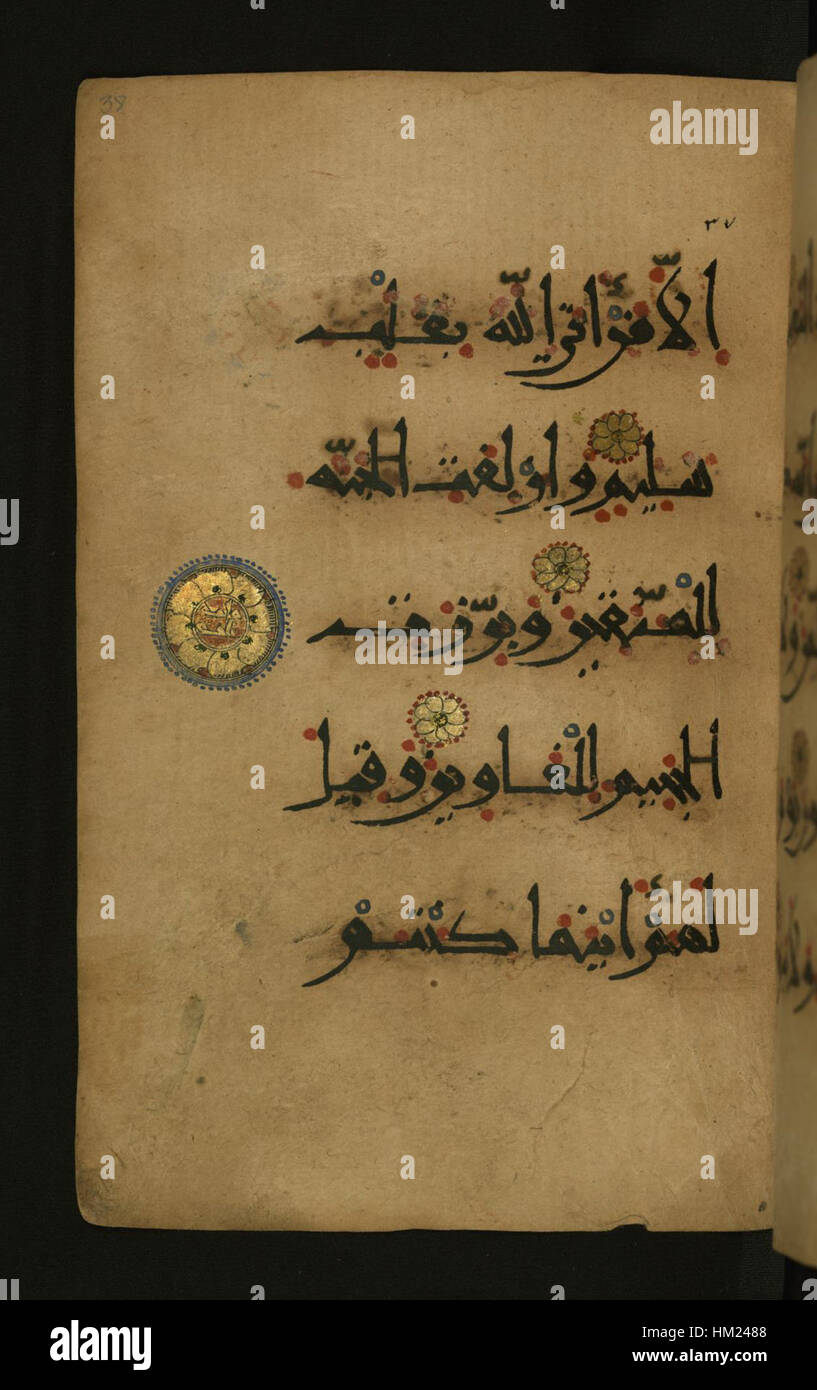 38
٣٧
الّا من أتى اللّه بقلب
سليم وازلفت الجنّه
للمتّقين وبرّزت
الجحيم للغاوين وقيل
لهم أينما كنتم
alamy
alamy
Image ID: HM2488
www.alamy.com